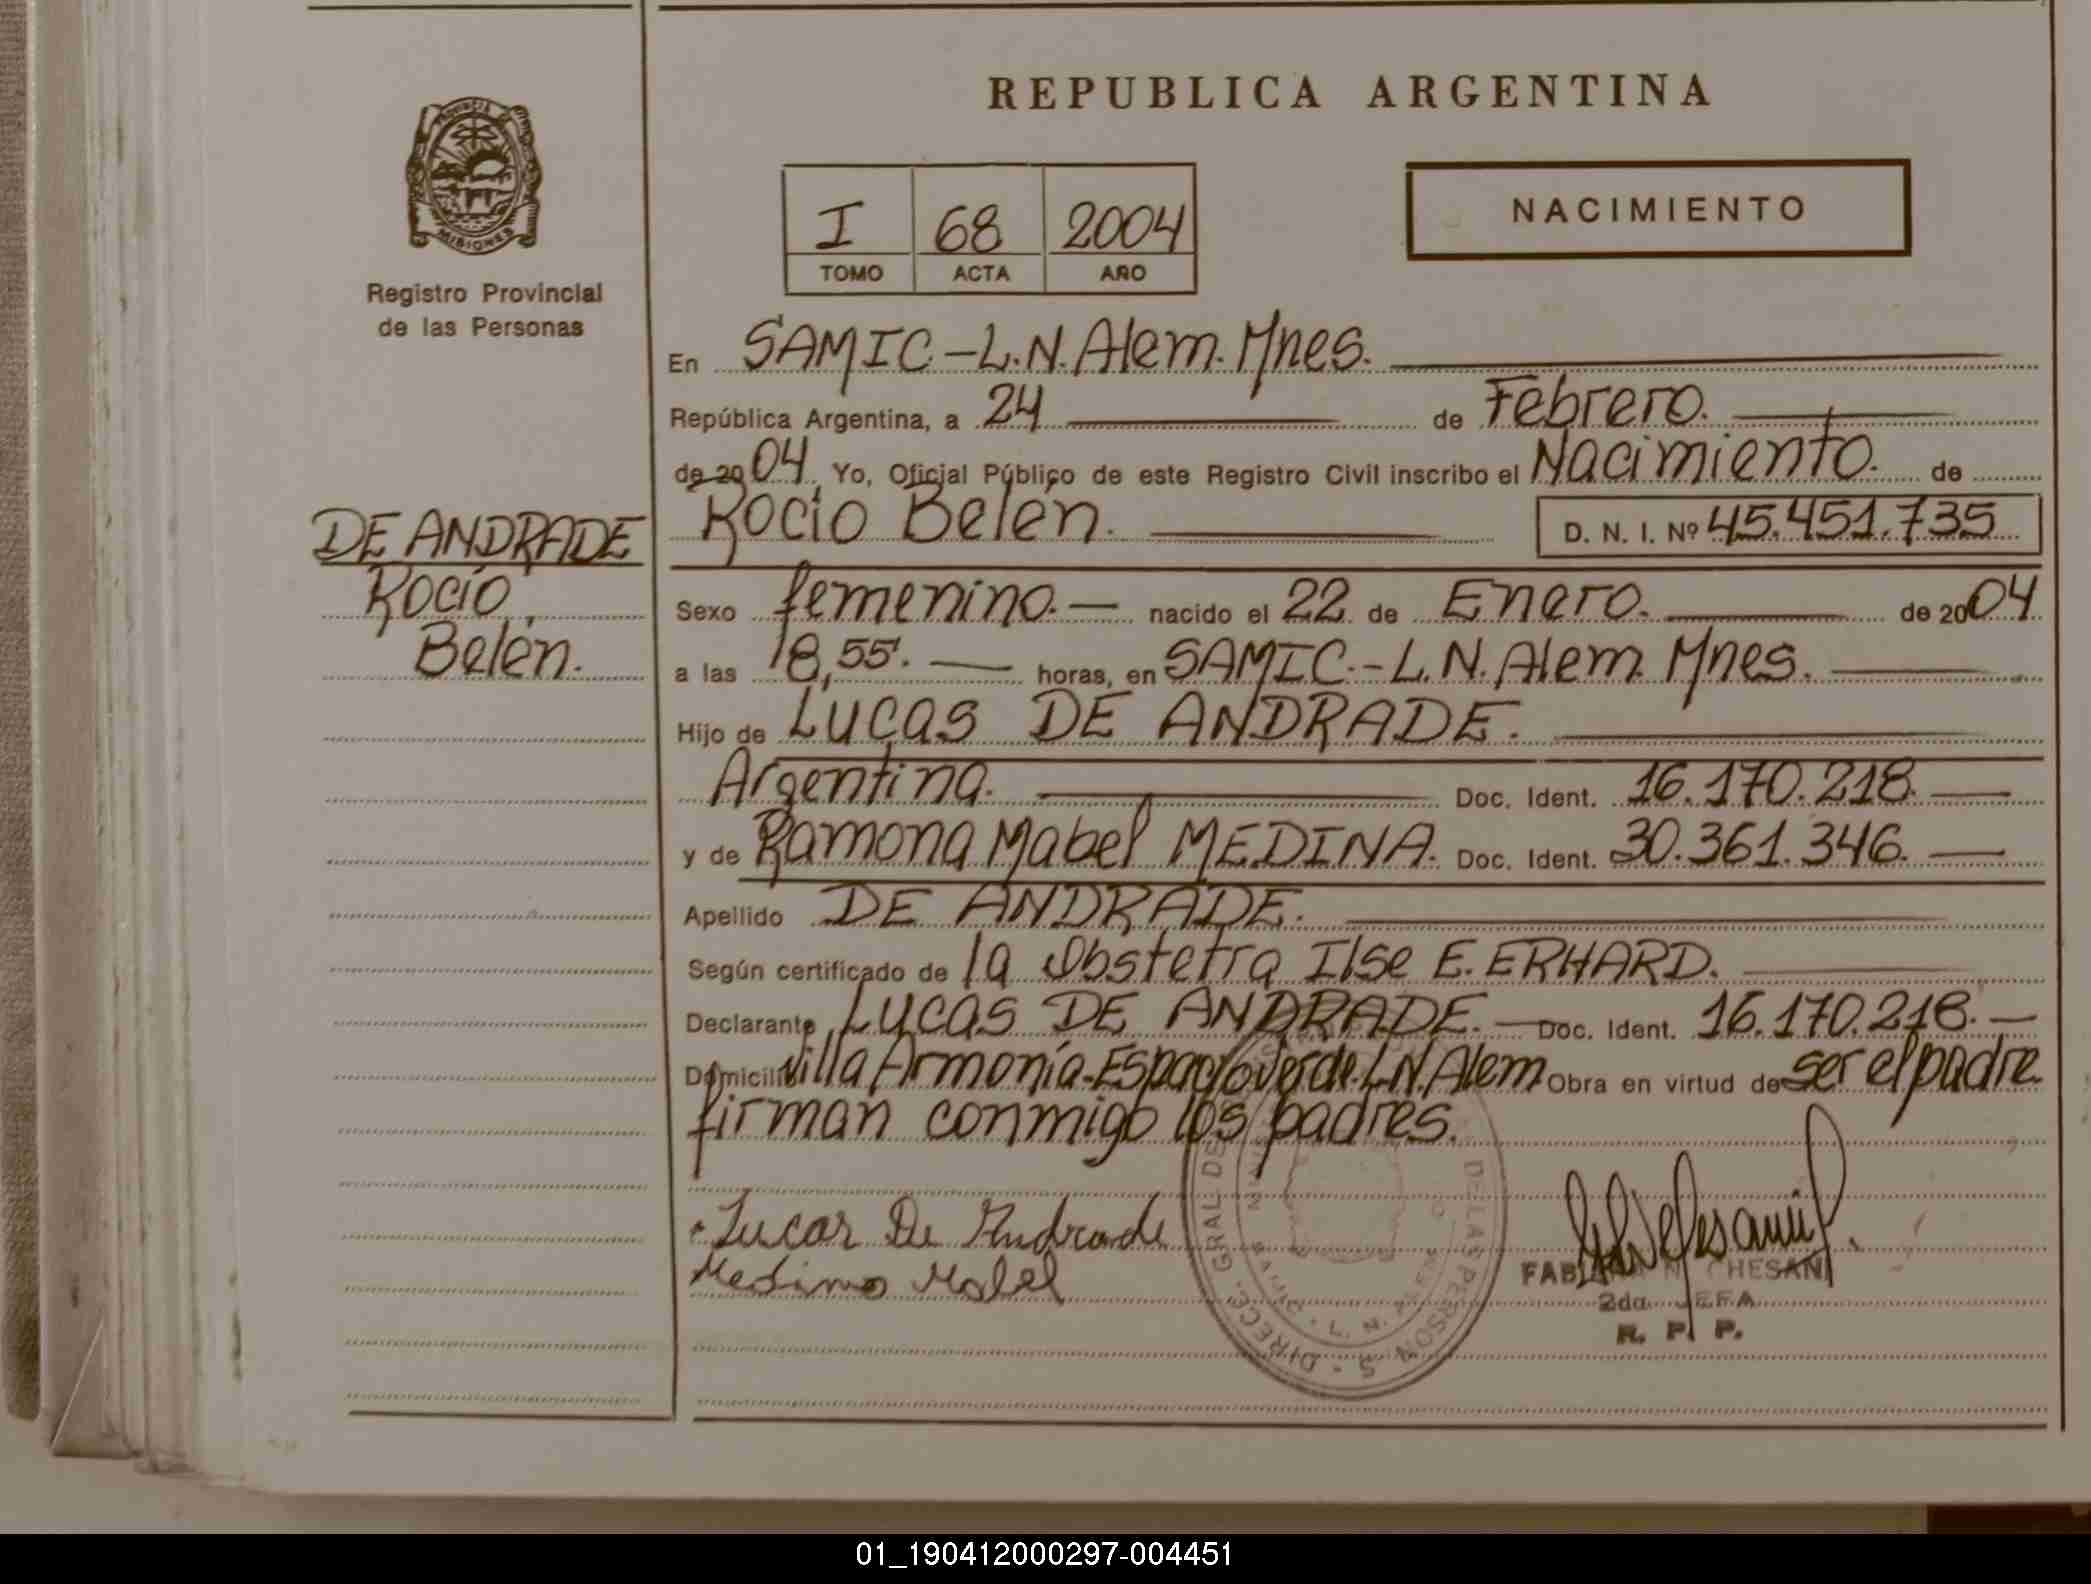 REPUBLICA ARGENTINA
PROVINCIA DE
MISIONES
Registro Provincial
de las Personas
I 68 2004
TOMO ACTA AÑO
NACIMIENTO
En SAMIC-L.N.Alem. Mnes.
República Argentina, a 24 de Febrero.
de 2004. Yo, Oficial Público de este Registro Civil inscribo el Nacimiento. de
Rocío Belén. D. N. I. Nº 45.451.735
DE ANDRADE
Rocío
Belén.
Sexo femenino.- nacido el 22 de Enero. de 2004
a las 18,55. horas, en SAMIC.-L.N.Alem Mnes.
Hijo de Lucas DE ANDRADE.
Argentina. Doc. Ident. 16.170.218.
y de Ramona Mabel MEDINA. Doc. Ident. 30.361.346.
Apellido DE ANDRADE.
Según certificado de la Obstetra Ilse E. ERHARD.
Declarante Lucas DE ANDRADE. Doc. Ident. 16.170.218.
Domicilio Villa Armonía-Espacio Verde. L.N. Alem Obra en virtud de ser el padre
firman conmigo los padres.
Lucas De Andrade
Medina Mabel
DIRECC. GRAL DE LAS PERSONAS
L. N. ALEM
FABIANA N. CHESANI
2da. JEFA
R. P. P.
01_190412000297-004451